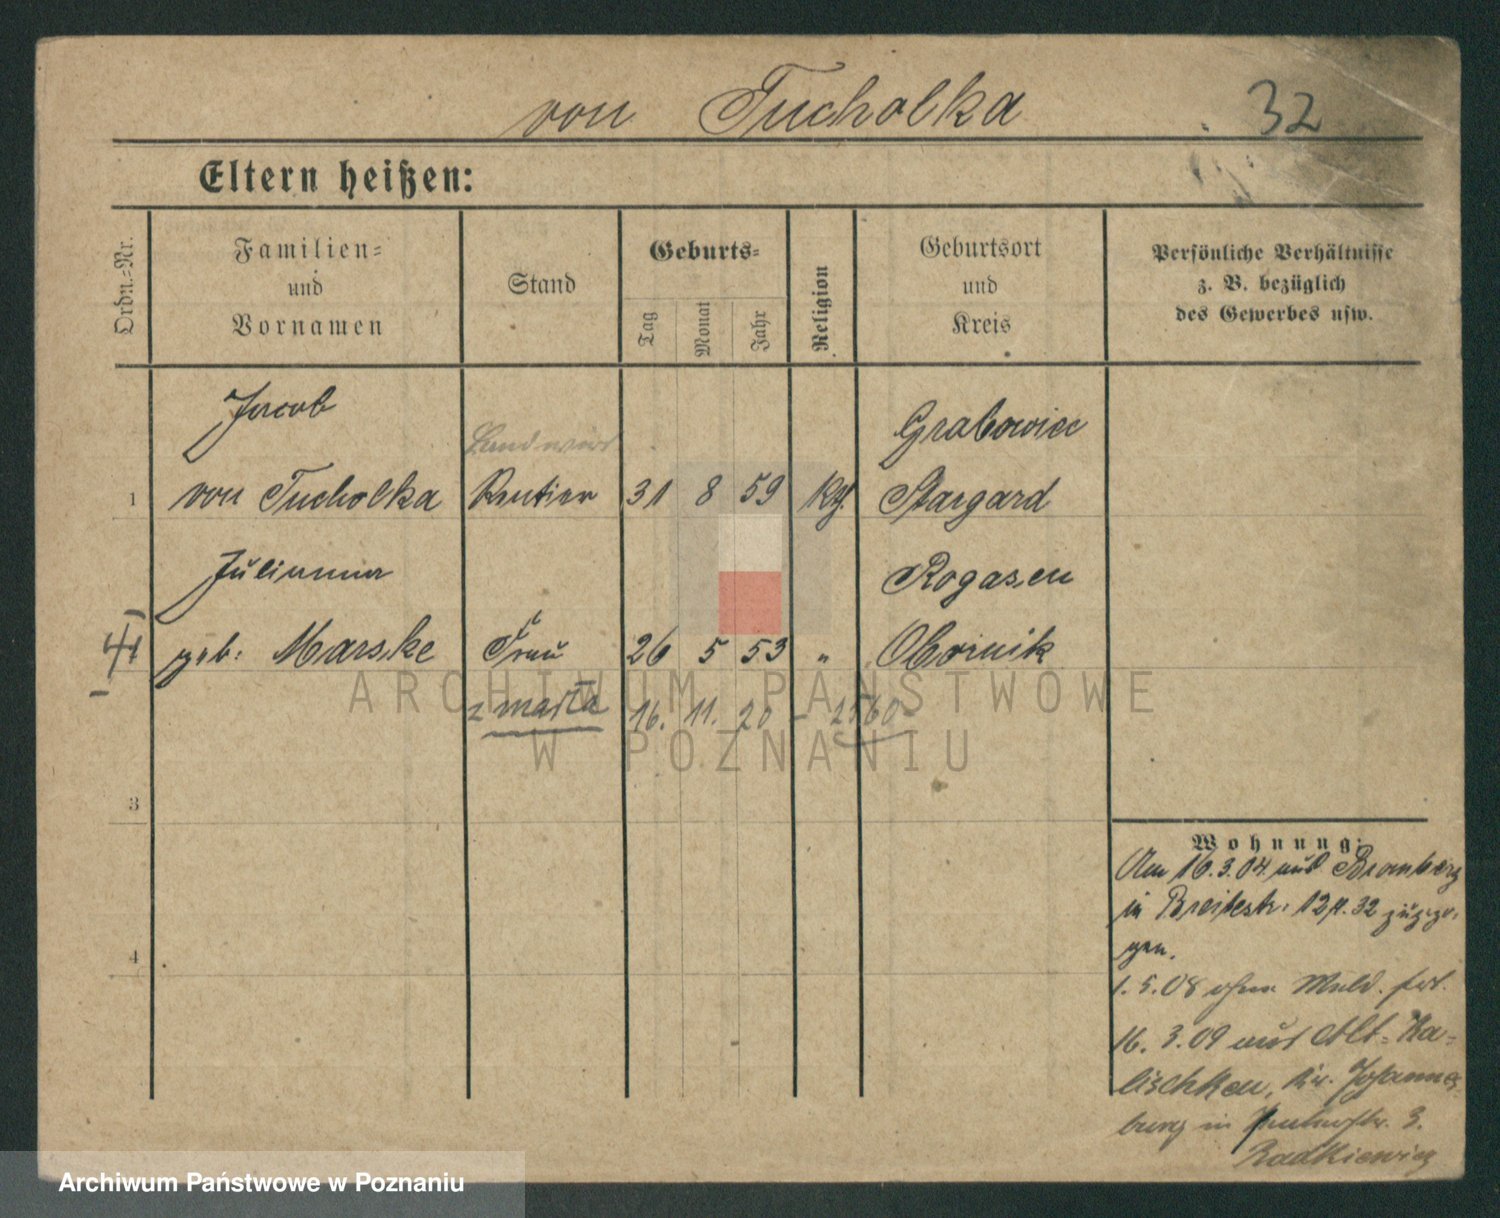 von Tucholka 32
Eltern heißen:
Ordn.-Nr.
Familien-
und
Vornamen
Stand
Geburts-
Tag
Monat
Jahr
Religion
Geburtsort
und
Kreis
Persönliche Verhältnisse
z. B. bezüglich
des Gewerbes usw.
Jacob
Landwirt
Grabowiec
1 von Tucholka Rentier 31 8 59 kth. Stargard
Julianna
Rogasen
geb. Marske Frau 26 5 53 " Obornik
zmarła 16. 11. 20 - 2560-
ARCHIWUM PAŃSTWOWE
W POZNANIU
3
4
Wohnung:
Am 16.3.04 aus Bromberg
in Breitestr. 12 b. 32 zugezo-
gen.
1.5.08 ohne Meld. fort.
16.3.09 aus Alt-Ka-
lischken, Kr. Johannis
burg in 3.
Radkiewicz
Archiwum Państwowe w Poznaniu